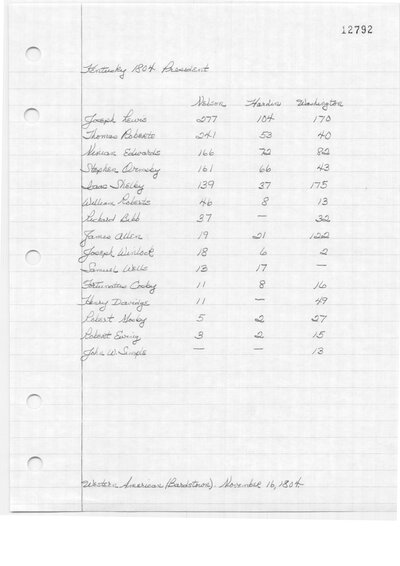 12792
Kentucky 1804 President
Nelson Hardin Washington
Joseph Lewis 277 104 170
Thomas Roberts 241 53 40
Ninian Edwards 166 72 82
Stephen Ormsby 161 66 43
Isaac Shelby 139 37 175
William Roberts 46 8 13
Richard Bibb 37 — 32
James Allen 19 21 122
Joseph Winlock 18 6 2
Samuel Wells 13 17 —
Fortunatus Cosby 11 8 16
Henry Davidge 11 — 49
Robert Mosby 5 2 27
Robert Ewing 3 2 15
John W. Semple — — 13
Western American (Bardstown). November 16, 1804